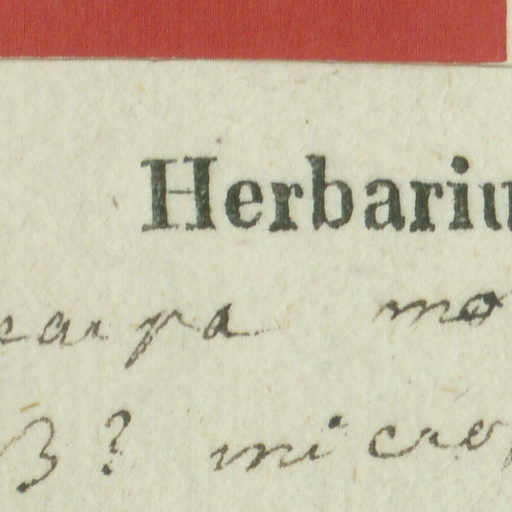 Herbariu
carpa mo
β ? micro